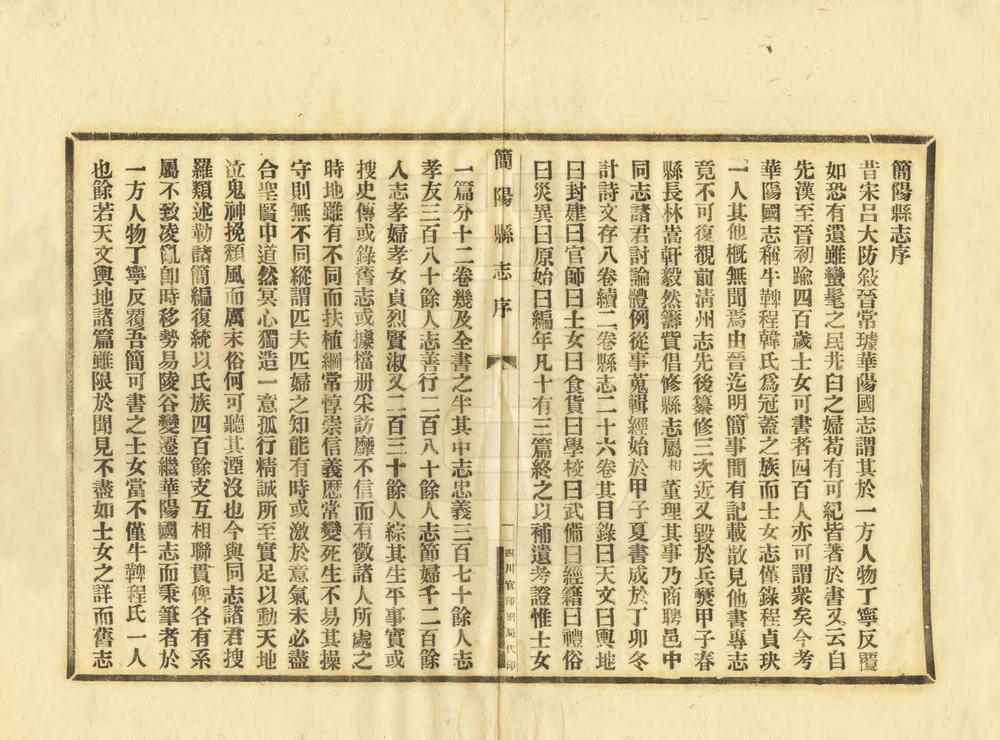 簡陽縣志序
昔宋呂大防敍晉常璩華陽國志謂其於一方人物丁寧反覆
如恐有遺雖蠻髦之民井臼之婦苟有可紀皆著於書又云自
先漢至晉初踰四百歲士女可書者四百人亦可謂衆矣今考
華陽國志稱牛鞞程韓氏爲冠蓋之族而士女志僅錄程貞玦
一人其他槪無聞焉由晉迄明簡事間有記載散見他書專志
竟不可復覩前淸州志先後纂修三次近又毀於兵燹甲子春
縣長林嵩軒毅然籌貲倡修縣志屬相董理其事乃商聘邑中
同志諸君討論體例從事蒐輯經始於甲子夏書成於丁卯冬
計詩文存八卷續二卷縣志二十六卷其目錄曰天文曰輿地
曰封建曰官師曰士女曰食貨曰學校曰武備曰經籍曰禮俗
曰災異曰原始曰編年凡十有三篇終之以補遺考證惟士女
簡陽縣志序
一
四川官印刷局代印
一篇分十二卷幾及全書之半其中志忠義三百七十餘人志
孝友三百八十餘人志善行二百八十餘人志節婦千二百餘
人志孝婦孝女貞烈賢淑又二百三十餘人綜其生平事實或
搜史傳或錄舊志或據檔册采訪靡不信而有徵諸人所處之
時地雖有不同而扶植綱常惇崇信義歷常變死生不易其操
守則無不同縱謂匹夫匹婦之知能有時或激於意氣未必盡
合聖賢中道然冥心獨造一意孤行精誠所至實足以動天地
泣鬼神挽頹風而厲末俗何可聽其湮沒也今與同志諸君搜
羅類述勒諸簡編復統以氏族四百餘支互相聯貫俾各有系
屬不致凌亂卽時移勢易陵谷變遷繼華陽國志而秉筆者於
一方人物丁寧反覆吾簡可書之士女當不僅牛鞞程氏一人
也餘若天文輿地諸篇雖限於聞見不盡如士女之詳而舊志